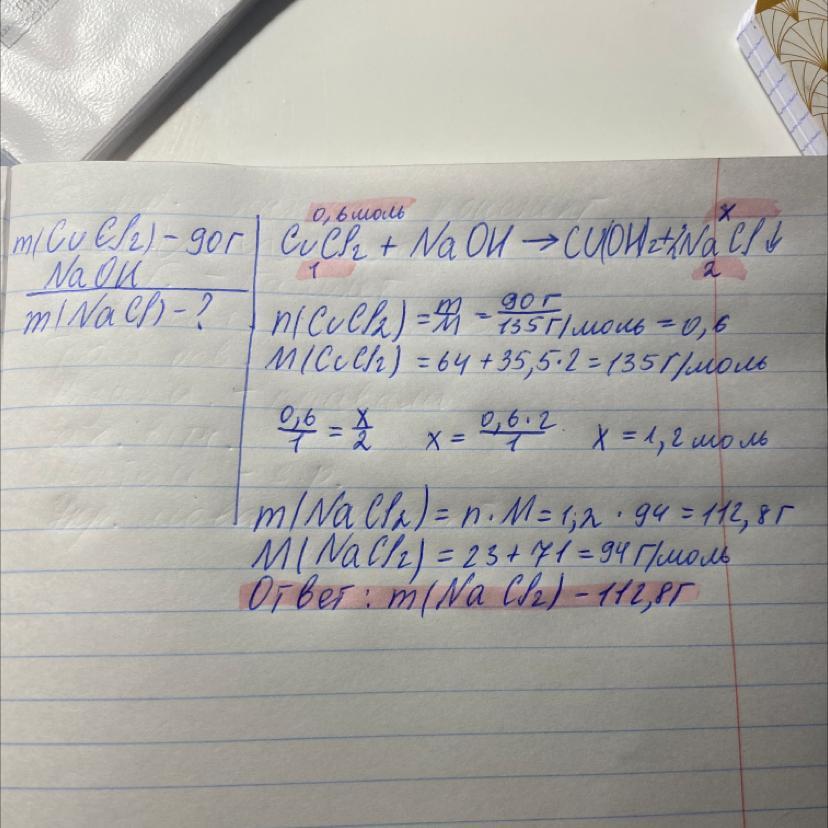 m(CuCl2) - 90г
NaOH
m(NaCl) - ?
0,6 моль x
CuCl2 + NaOH → Cu(OH)2 + 2NaCl↓
1 2
n(CuCl2) = m/M = 90 г/135 г/моль = 0,6
M(CuCl2) = 64 + 35,5·2 = 135 г/моль
0,6/1 = x/2 x = 0,6·2/1 x = 1,2 моль
m(NaCl2) = n·M = 1,2 · 94 = 112,8 г
M(NaCl2) = 23 + 71 = 94 г/моль
Ответ: m(NaCl2) - 112,8 г